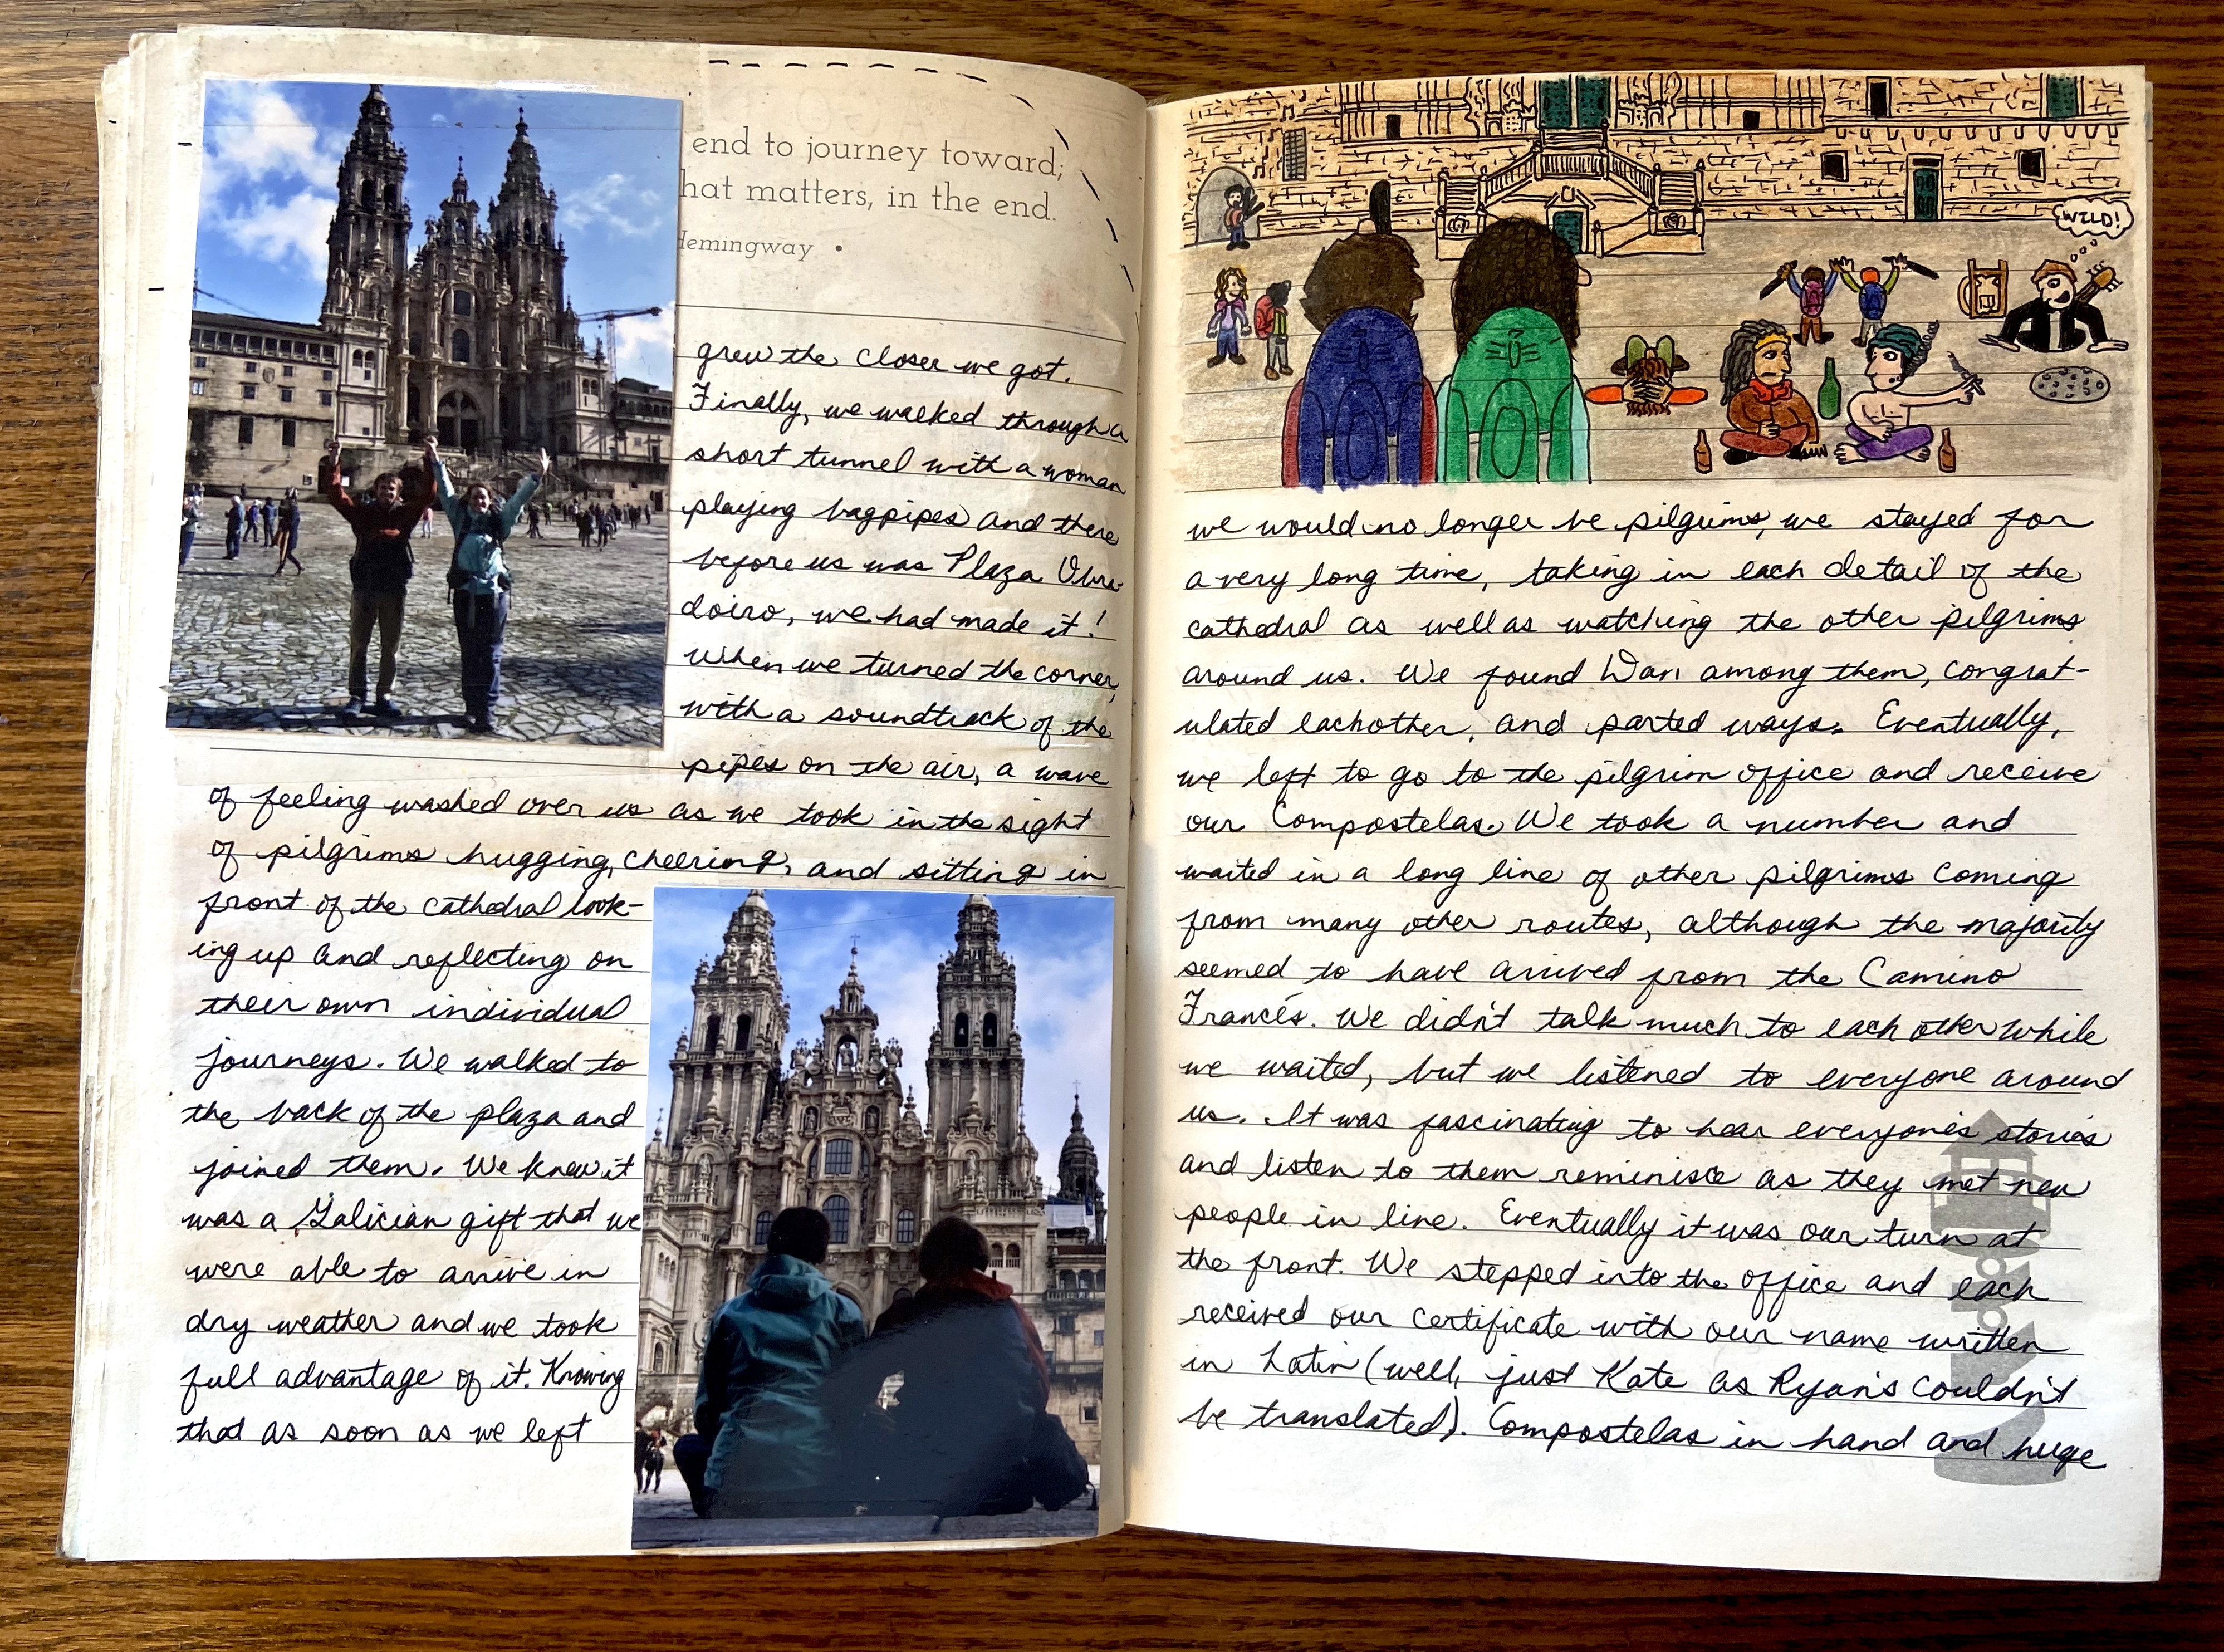 end to journey toward;
hat matters, in the end.
Hemingway •
grew the closer we got.
Finally, we walked through a
short tunnel with a woman
playing bagpipes and there
before us was Plaza Obra-
doiro, we had made it!
When we turned the corner,
with a soundtrack of the
pipes on the air, a wave
of feeling washed over us as we took in the sight
of pilgrims hugging, cheering, and sitting in
front of the cathedral look-
ing up and reflecting on
their own individual
journeys. We walked to
the back of the plaza and
joined them. We knew it
was a Galician gift that we
were able to arrive in
dry weather and we took
full advantage of it. Knowing
that as soon as we left
WILD!
we would no longer be pilgrims, we stayed for
a very long time, taking in each detail of the
cathedral as well as watching the other pilgrims
around us. We found Dan among them, congrat-
ulated eachother, and parted ways. Eventually,
we left to go to the pilgrim office and receive
our Compostelas. We took a number and
waited in a long line of other pilgrims coming
from many other routes, although the majority
seemed to have arrived from the Camino
Francés. We didn't talk much to each other while
we waited, but we listened to everyone around
us. It was fascinating to hear everyone's stories
and listen to them reminisce as they met new
people in line. Eventually it was our turn at
the front. We stepped into the office and each
received our certificate with our name written
in Latin (well, just Kate as Ryan's couldn't
be translated). Compostelas in hand and huge